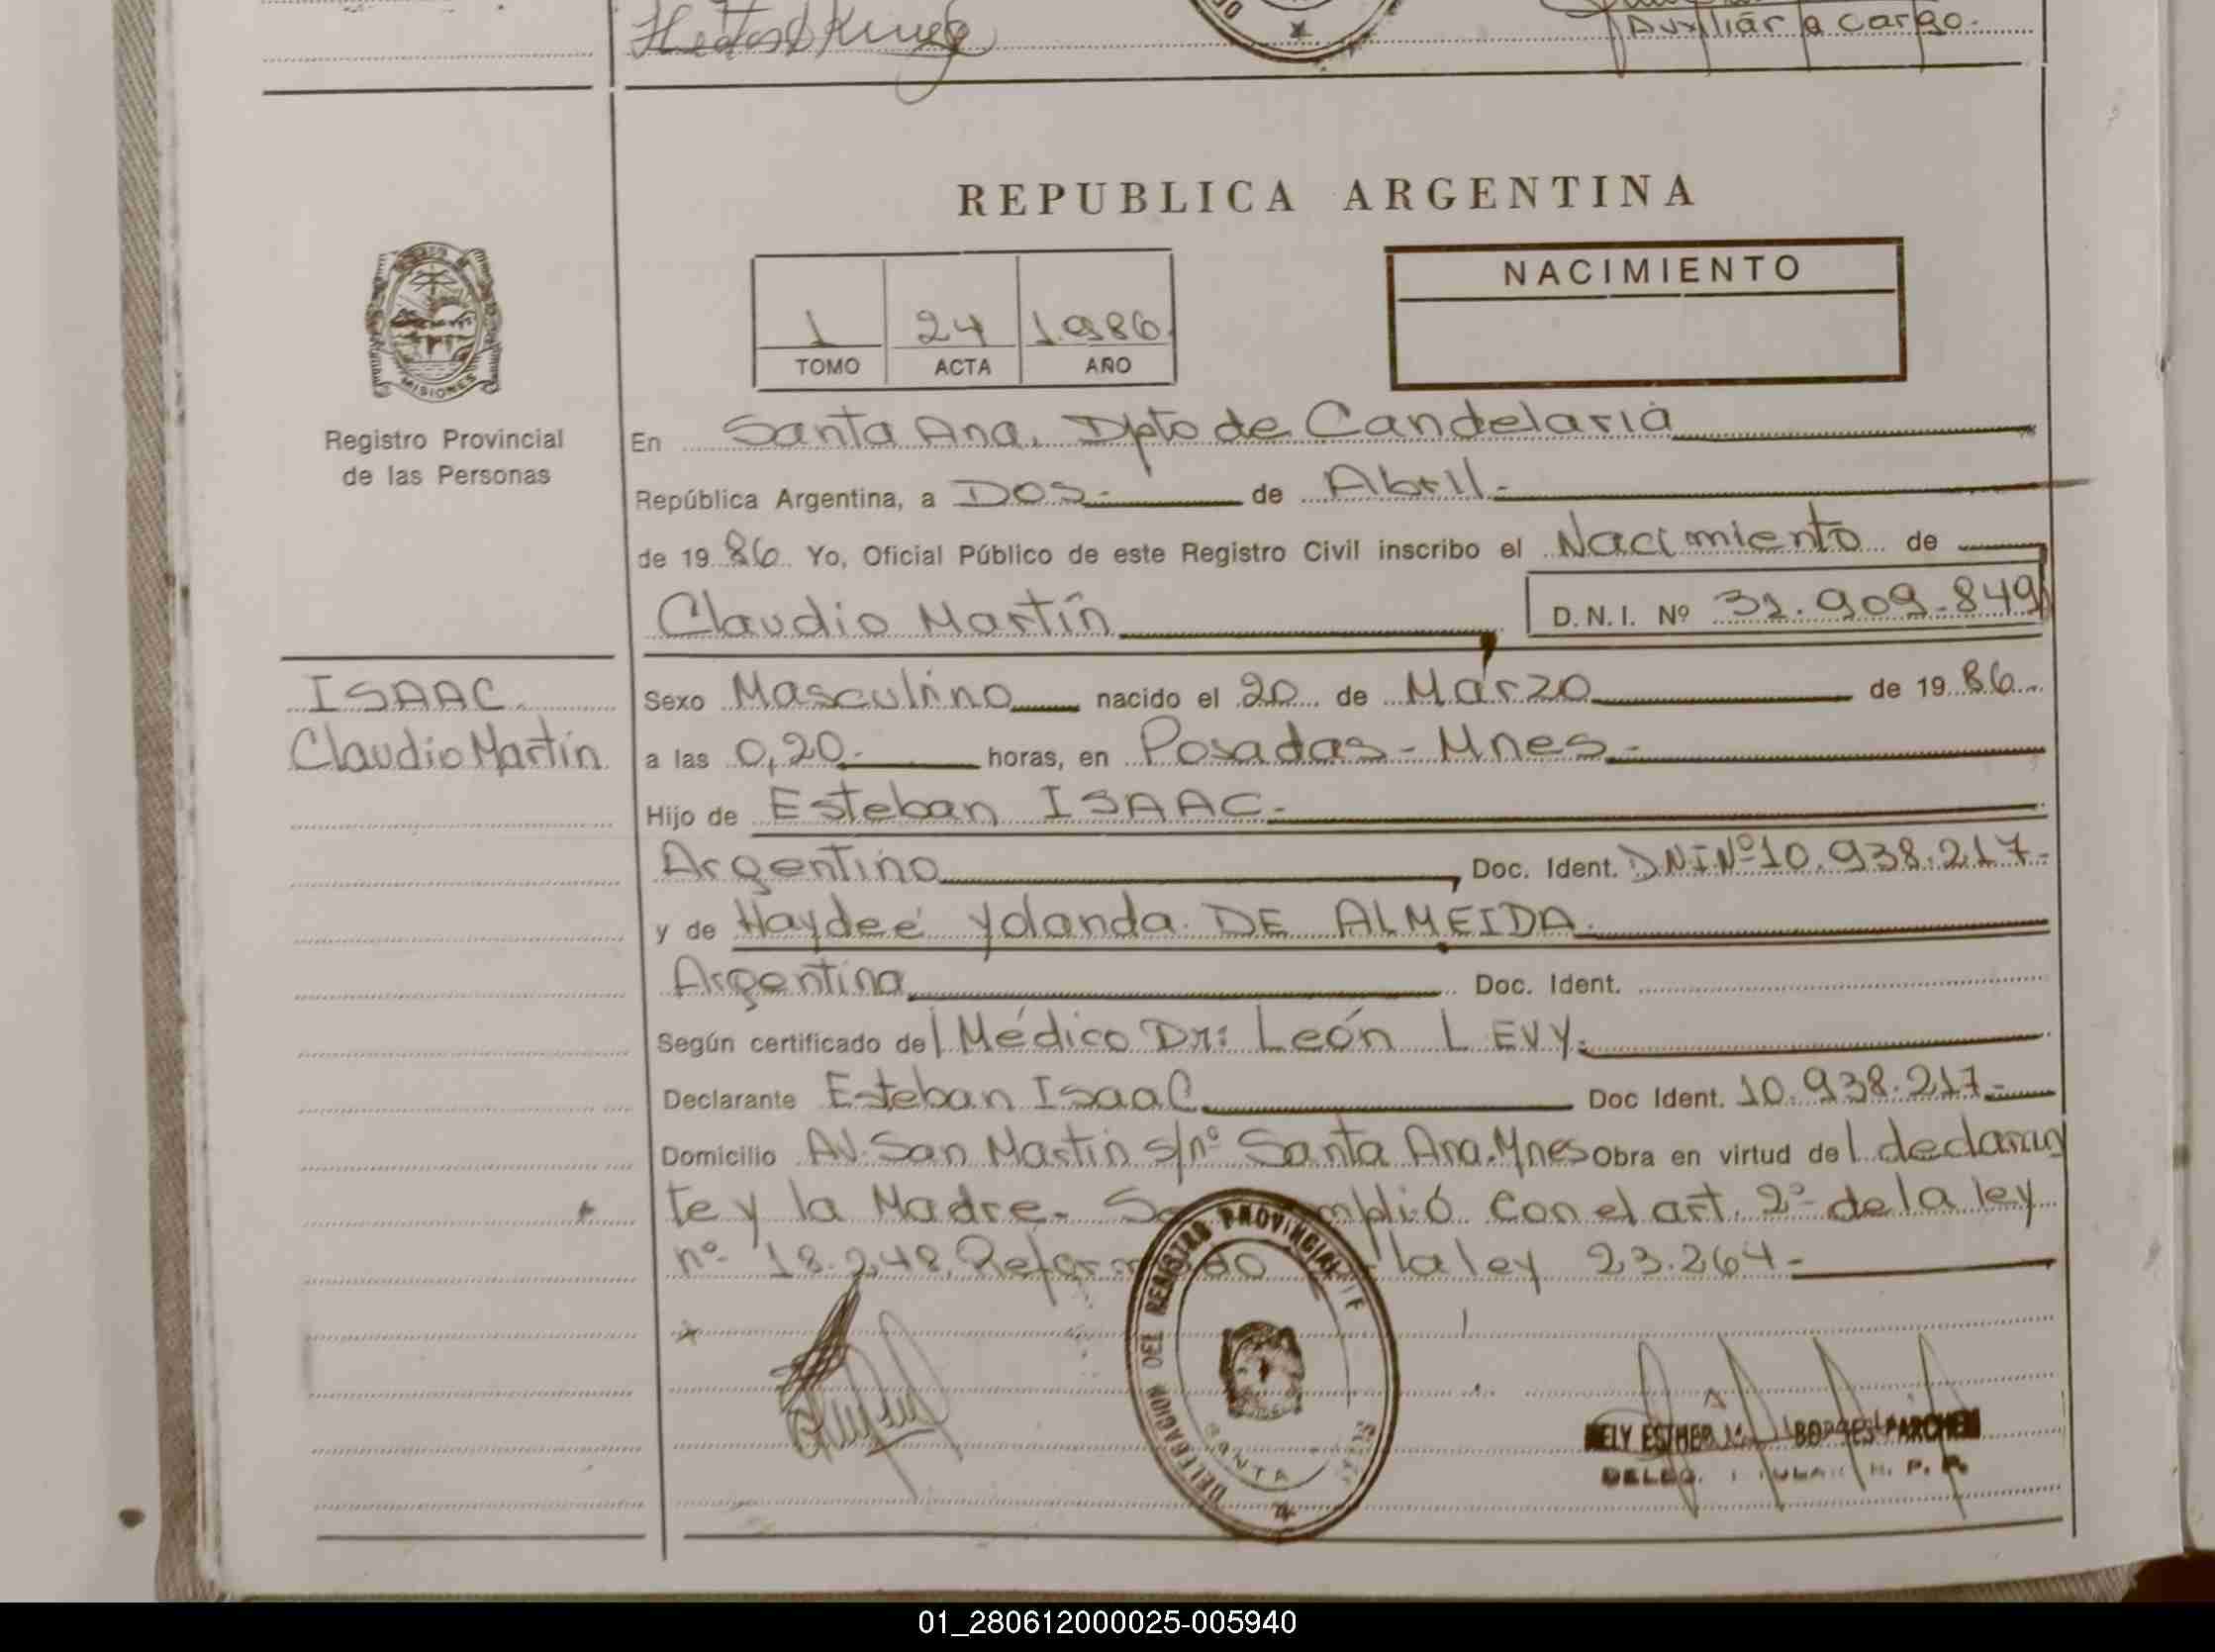 Auxiliar a cargo.
REPUBLICA ARGENTINA
MISIONES
Registro Provincial
de las Personas
1 24 1.986.
TOMO ACTA AÑO
NACIMIENTO
En Santa Ana. Dpto de Candelaria
República Argentina, a DOS.- de Abril.-
de 1986. Yo, Oficial Público de este Registro Civil inscribo el Nacimiento de
Claudio Martín D.N.I. Nº 31.909.849
ISAAC.
Claudio Martín
Sexo Masculino nacido el 20 de Marzo de 1986.
a las 0,20.- horas, en Posadas - Mnes.-
Hijo de Esteban ISAAC.-
Argentino, Doc. Ident. DNI Nº 10.938.217.-
y de Haydeé Yolanda DE ALMEIDA.
Argentina Doc. Ident.
Según certificado del Médico Dr: León LEVY.
Declarante Esteban Isaac Doc Ident. 10.938.217.-
Domicilio Av. San Martín s/nº Santa Ana. Mnes Obra en virtud del declaran
te y la Madre.- con el art. 2º de la ley
nº 18.248. la ley 23.264.-
DELEGACION DEL REGISTRO PROVINCIAL DE
SANTA
ESTHER BORGES PARCHEM
R. P. P.
01_280612000025-005940